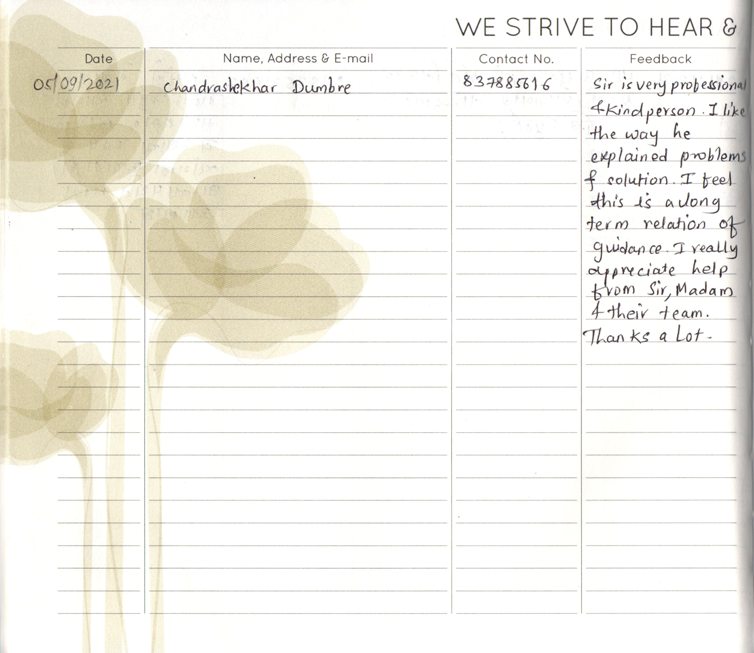 WE STRIVE TO HEAR &
Date Name, Address & E-mail Contact No. Feedback
05/09/2021 Chandrashekhar Dumbre 837885616 Sir is very professional
& kind person. I like
the way he
explained problems
& solution. I feel
this is a long
term relation of
guidance. I really
appreciate help
from Sir, Madam
& their team.
Thanks a Lot.